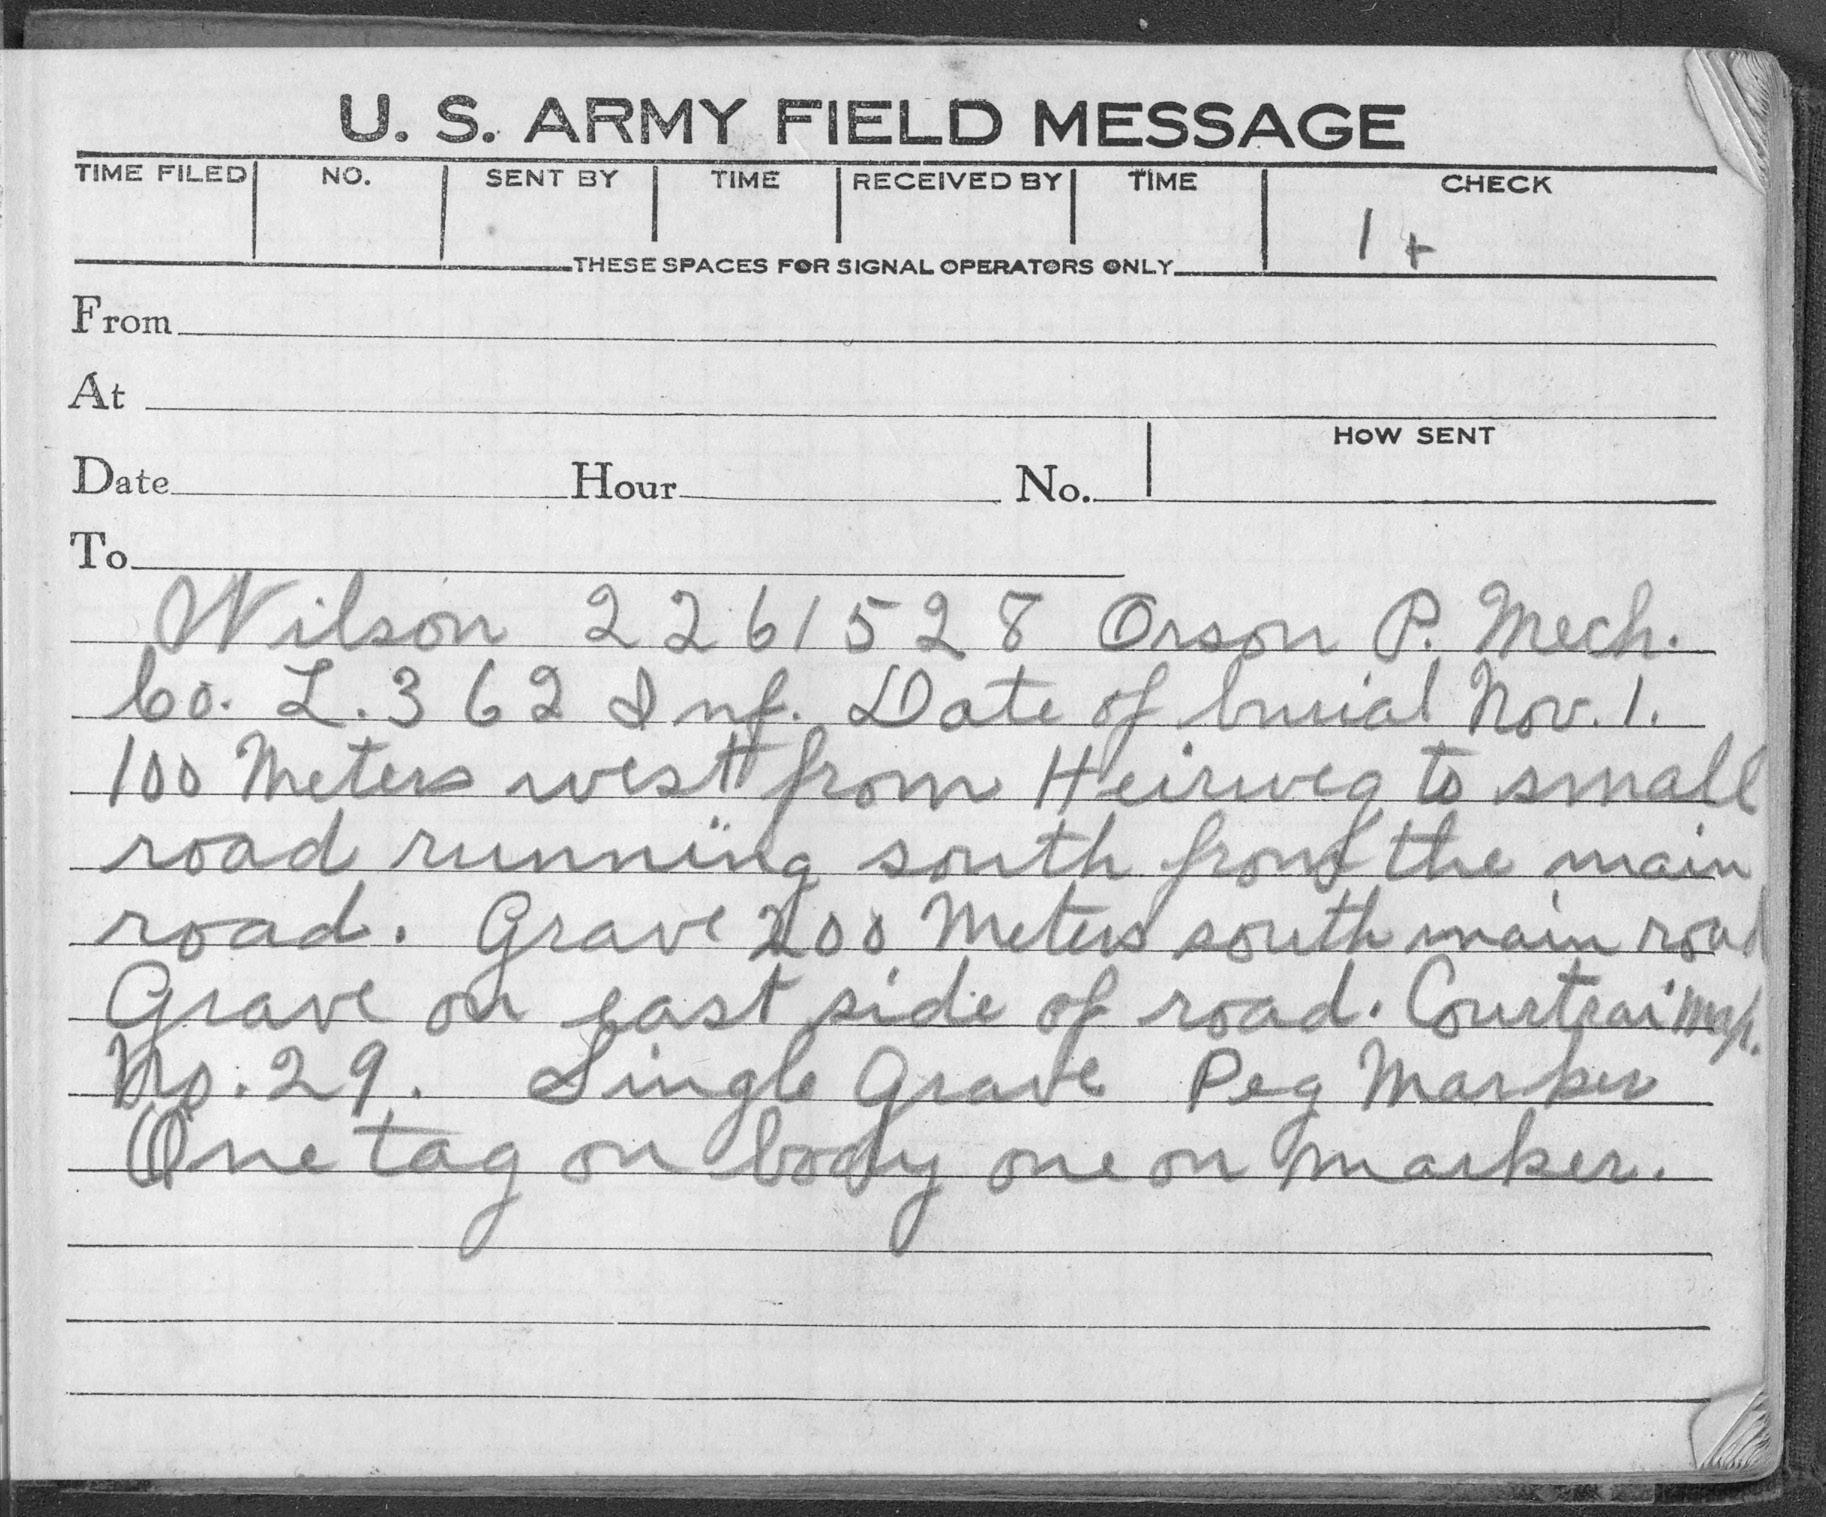 U. S. ARMY FIELD MESSAGE
TIME FILED NO. SENT BY TIME RECEIVED BY TIME CHECK
1 +
THESE SPACES FOR SIGNAL OPERATORS ONLY
From
At
HOW SENT
Date Hour No.
To
Wilson 2261528 Orson P. Mech.
Co. L. 362 Inf. Date of burial Nov. 1.
100 Meters west from Heirweg to small
road running south from the main
road. Grave 200 Meters south main road
Grave on east side of road. Courtrai Map.
No. 29. Single Grave Peg Marker
One tag on body one on marker.